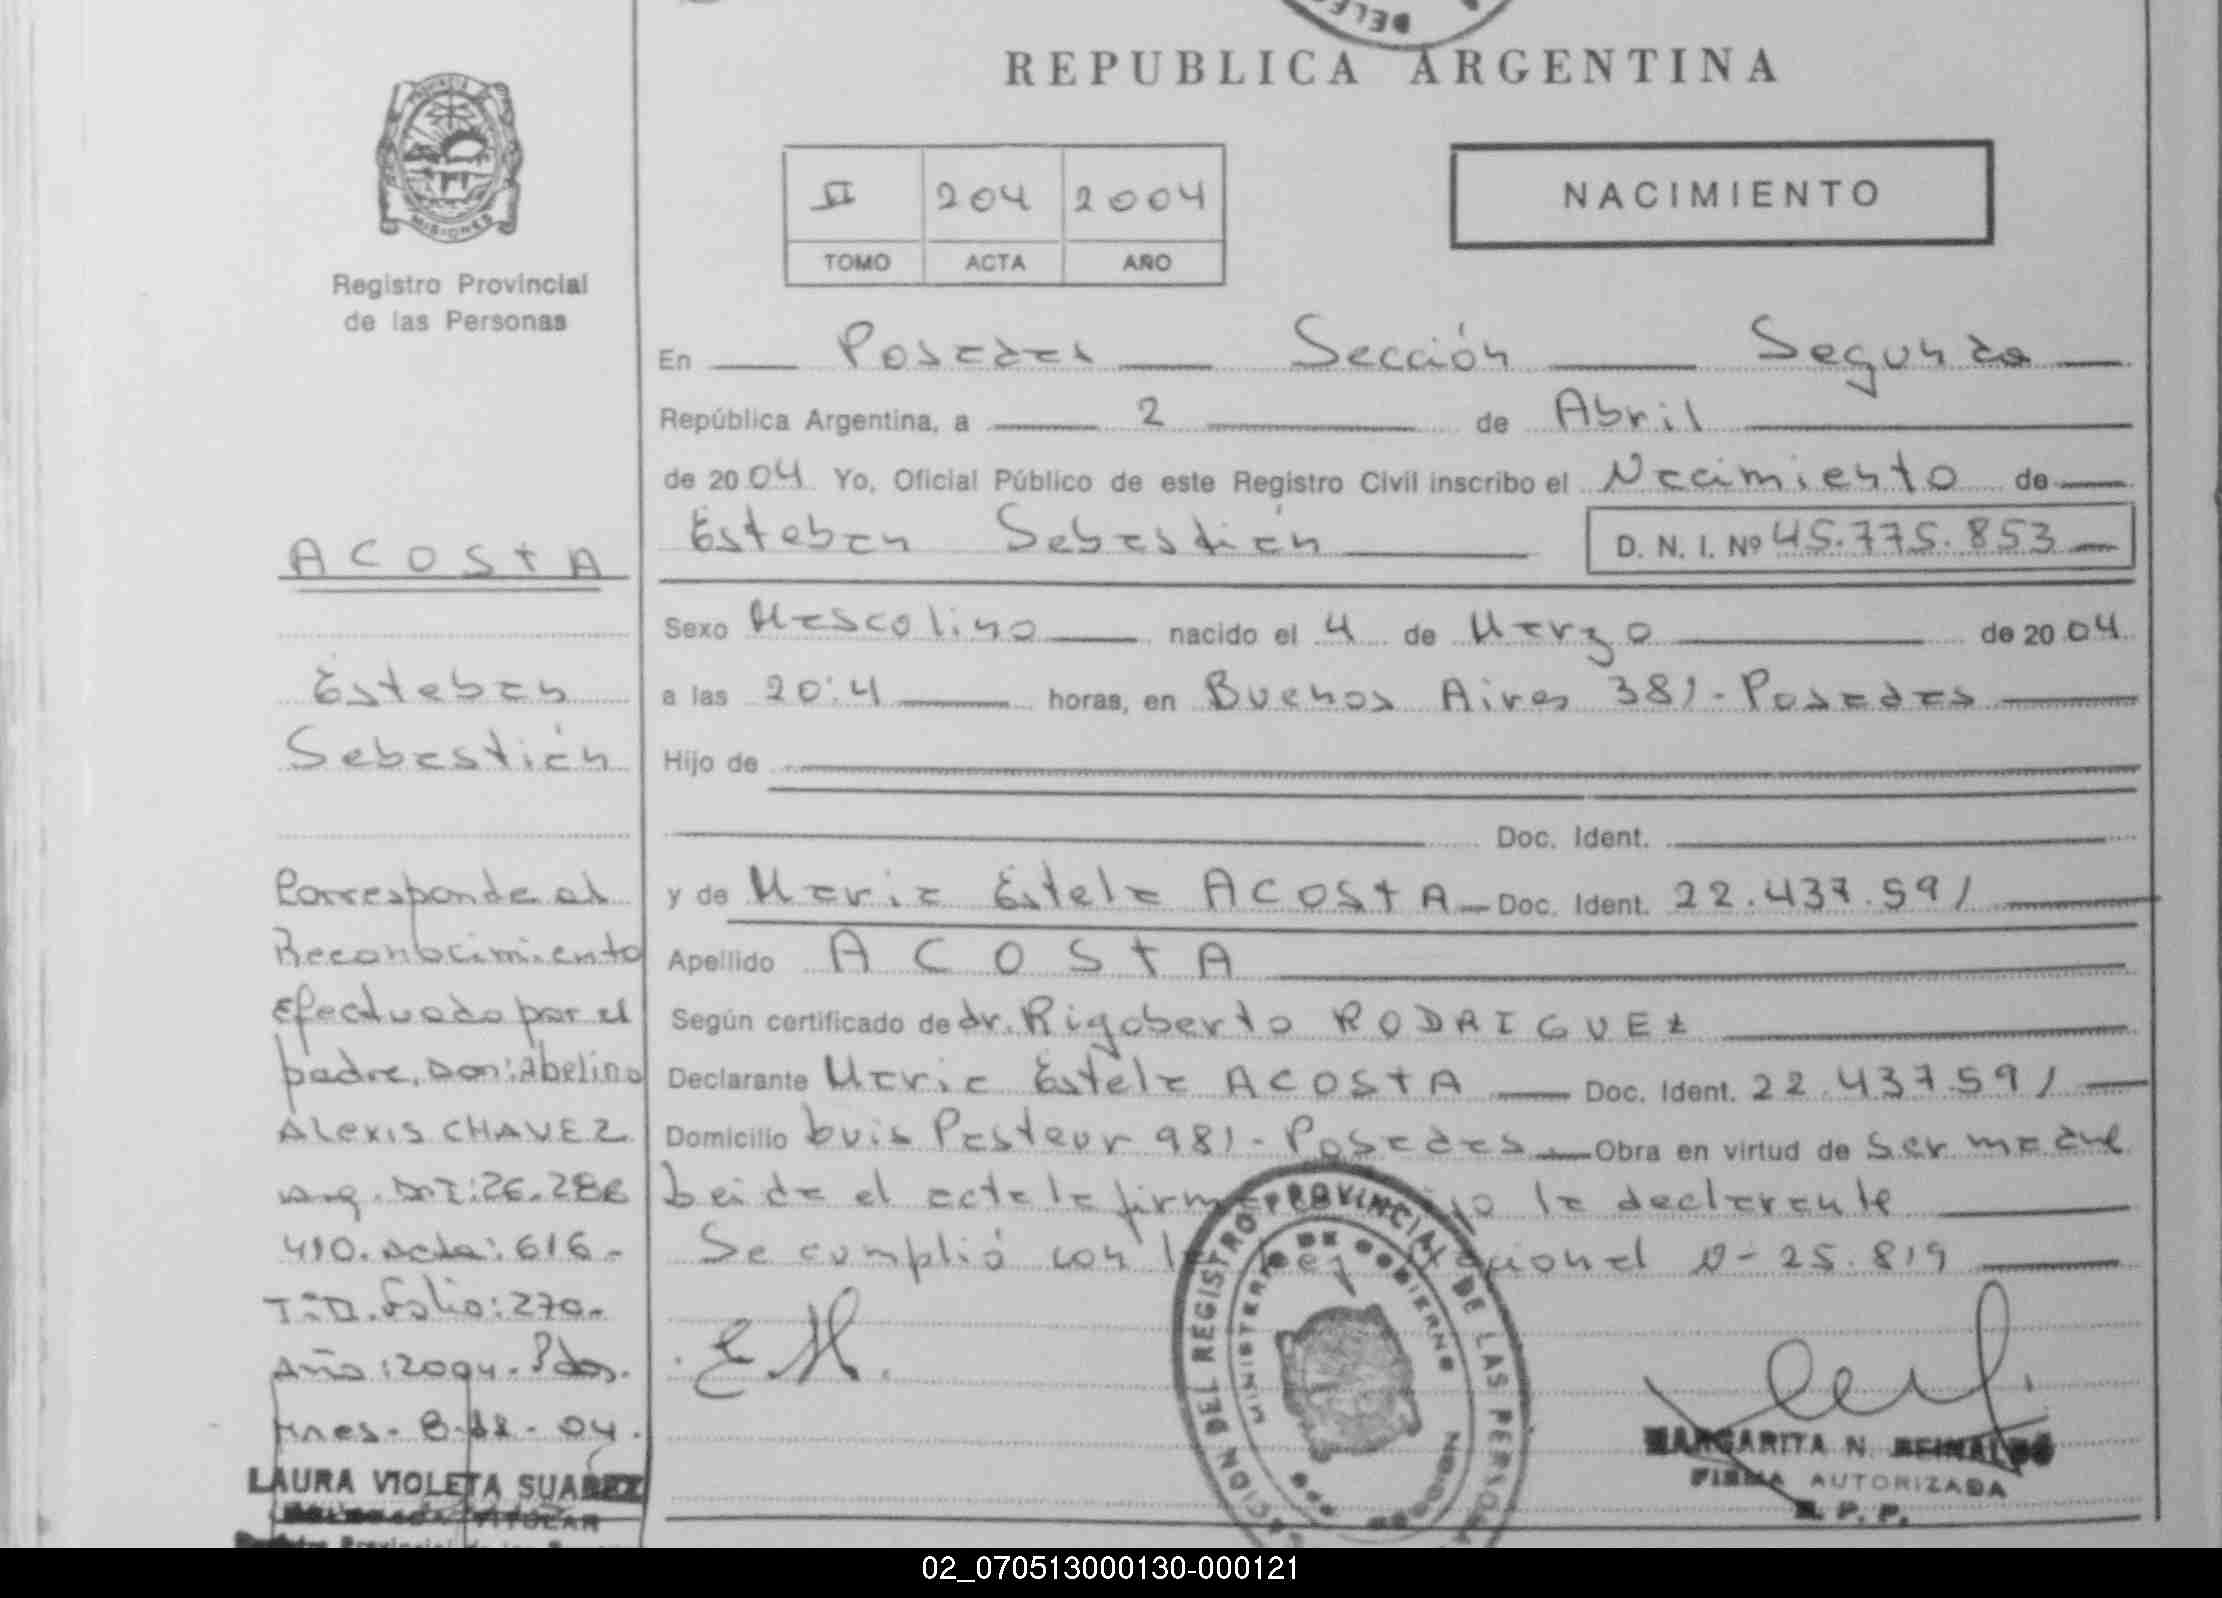 REPUBLICA ARGENTINA
PROVINCIA DE
MISIONES
Registro Provincial
de las Personas
II 204 2004
TOMO ACTA AÑO
NACIMIENTO
En Posadas Sección Segunda
República Argentina, a 2 de Abril
de 2004 Yo, Oficial Público de este Registro Civil inscribo el Nacimiento de
Esteban Sebastián D. N. I. Nº 45.775.853
Sexo Masculino nacido el 4 de Marzo de 2004
a las 20:4 horas, en Buenos Aires 381 - Posadas
Hijo de
Doc. Ident.
y de Maria Estela ACOSTA Doc. Ident. 22.437.591
Apellido ACOSTA
Según certificado de dr. Rigoberto RODRIGUEZ
Declarante Maria Estela ACOSTA Doc. Ident. 22.437.591
Domicilio Luis Pasteur 981 - Posadas Obra en virtud de ser madre
Leida el acta la firma la declarante
Se cumplió con la Ley Nacional Nº 25.819
ACOSTA
Esteban
Sebastián
Corresponde al
Reconocimiento
efectuado por el
padre, Don: Abelino
ALEXIS CHAVEZ
arg. DNI: 26.286
410. Acta: 616.
Folio: 270.
Año: 2004. Pdas.
Mnes. 04.
LAURA VIOLETA SUAREZ
TITULAR
DEL REGISTRO PROVINCIAL DE LAS PERSONAS
MINISTERIO DE GOBIERNO
MARGARITA N.
FIRMA AUTORIZADA
R. P. P.
02_070513000130-000121